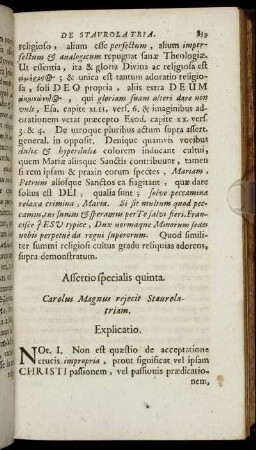 DE STAVROLATRIA. 859
religioso, alium esse perfectum, alium imper-
fectum & analogicum repugnat sanæ Theologiæ.
Ut essentia, ita & gloria Divina ac religiosa est
3 & unica est tantum adoratio religio-
sa, soli DEO propria, aliis extra DEUM
qui gloriam suam alteri dare non
vult, Esa. capite XLII. vers. 6. & imaginibus ad-
orationem vetat præcepto Exod. capite XX. vers.
3. & 4. De utroque pluribus actum supra assert.
general. in opposit. Denique quantvis vocibus
duliæ & hyperduliæ colorem inducant cultui,
quem Mariæ aliisque Sanctis contribuunt, tamen
si rem ipsam & praxin eorum spectes, Mariam,
Petrum aliosque Sanctos ea flagitant, quæ dare
solius est DEI, qualia sunt: solve peccamina
relaxa crimina, Maria. Si sit multum quod pec-
camus, in summis & speramus per Te salvi fieri. Fran-
cisce JESU typice, Dux normaque Minorum sedes
nobis perpetuè da regni superorum. Quod simili-
ter summi religiosi cultus gradu reliquias adorent,
supra demonstratum.
Assertio specialis quinta.
Carolus Magnus rejecit Staurola-
triam.
Explicatio.
NOt. I. Non est quæstio de acceptatione
crucis impropria, prout significat vel ipsam
CHRISTI passionem, vel passionis prædicatio-
nem,